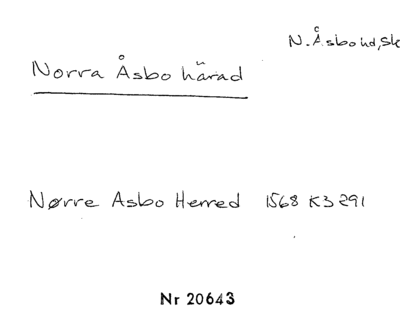 N. Åsbo hd, Sk
Norra Åsbo härad
Nørre Asbo Herred 1568 K3 291
Nr 20643